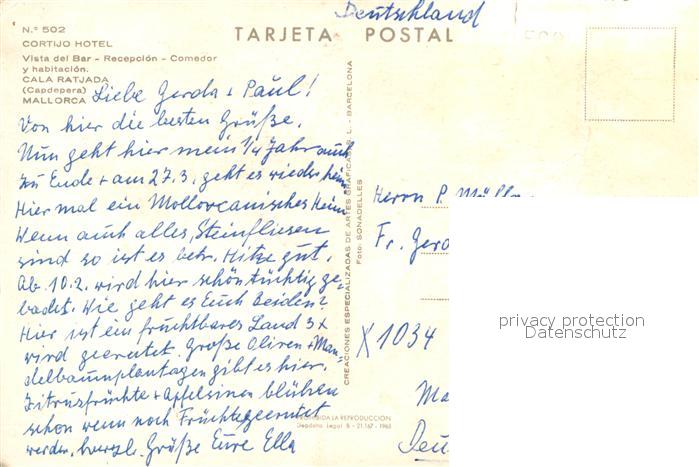 Deutschland
N.º 502
TARJETA POSTAL
CORTIJO HOTEL
Vista del Bar - Recepción - Comedor
y habitación.
CALA RATJADA
(Capdepera)
MALLORCA
Liebe Gerda + Paul!
Von hier die besten Grüße.
Nun geht hier mein 1/4 Jahr auch
zu Ende + am 27.3. geht es wieder heim
Hier mal ein Mollorcanisches Heim
Wenn auch alles, Steinfliesen
sind so ist es betr. Hitze gut.
Ab 10.2. wird hier schön tüchtig ge-
badet. Wie geht es Euch beiden?
Hier ist ein fruchtbares Land 3x
wird geerntet. Große Oliven + Man-
delbaumplantagen gibt es hier.
Zitrusfrüchte + Apfelsinen blühen
schon wenn noch Früchte geerntet
werden. herzl. Grüße Eure Ella
CREACIONES ESPECIALIZADAS DE ARTES GRAFICAS S. L. - BARCELONA
Foto: SONADELLES
LA REPRODUCCION
Depósito Legal B - 21.167 - 1963
Herrn P. Müller
Fr. Gerd
X1034
privacy protection
Datenschutz
Ma
Deu